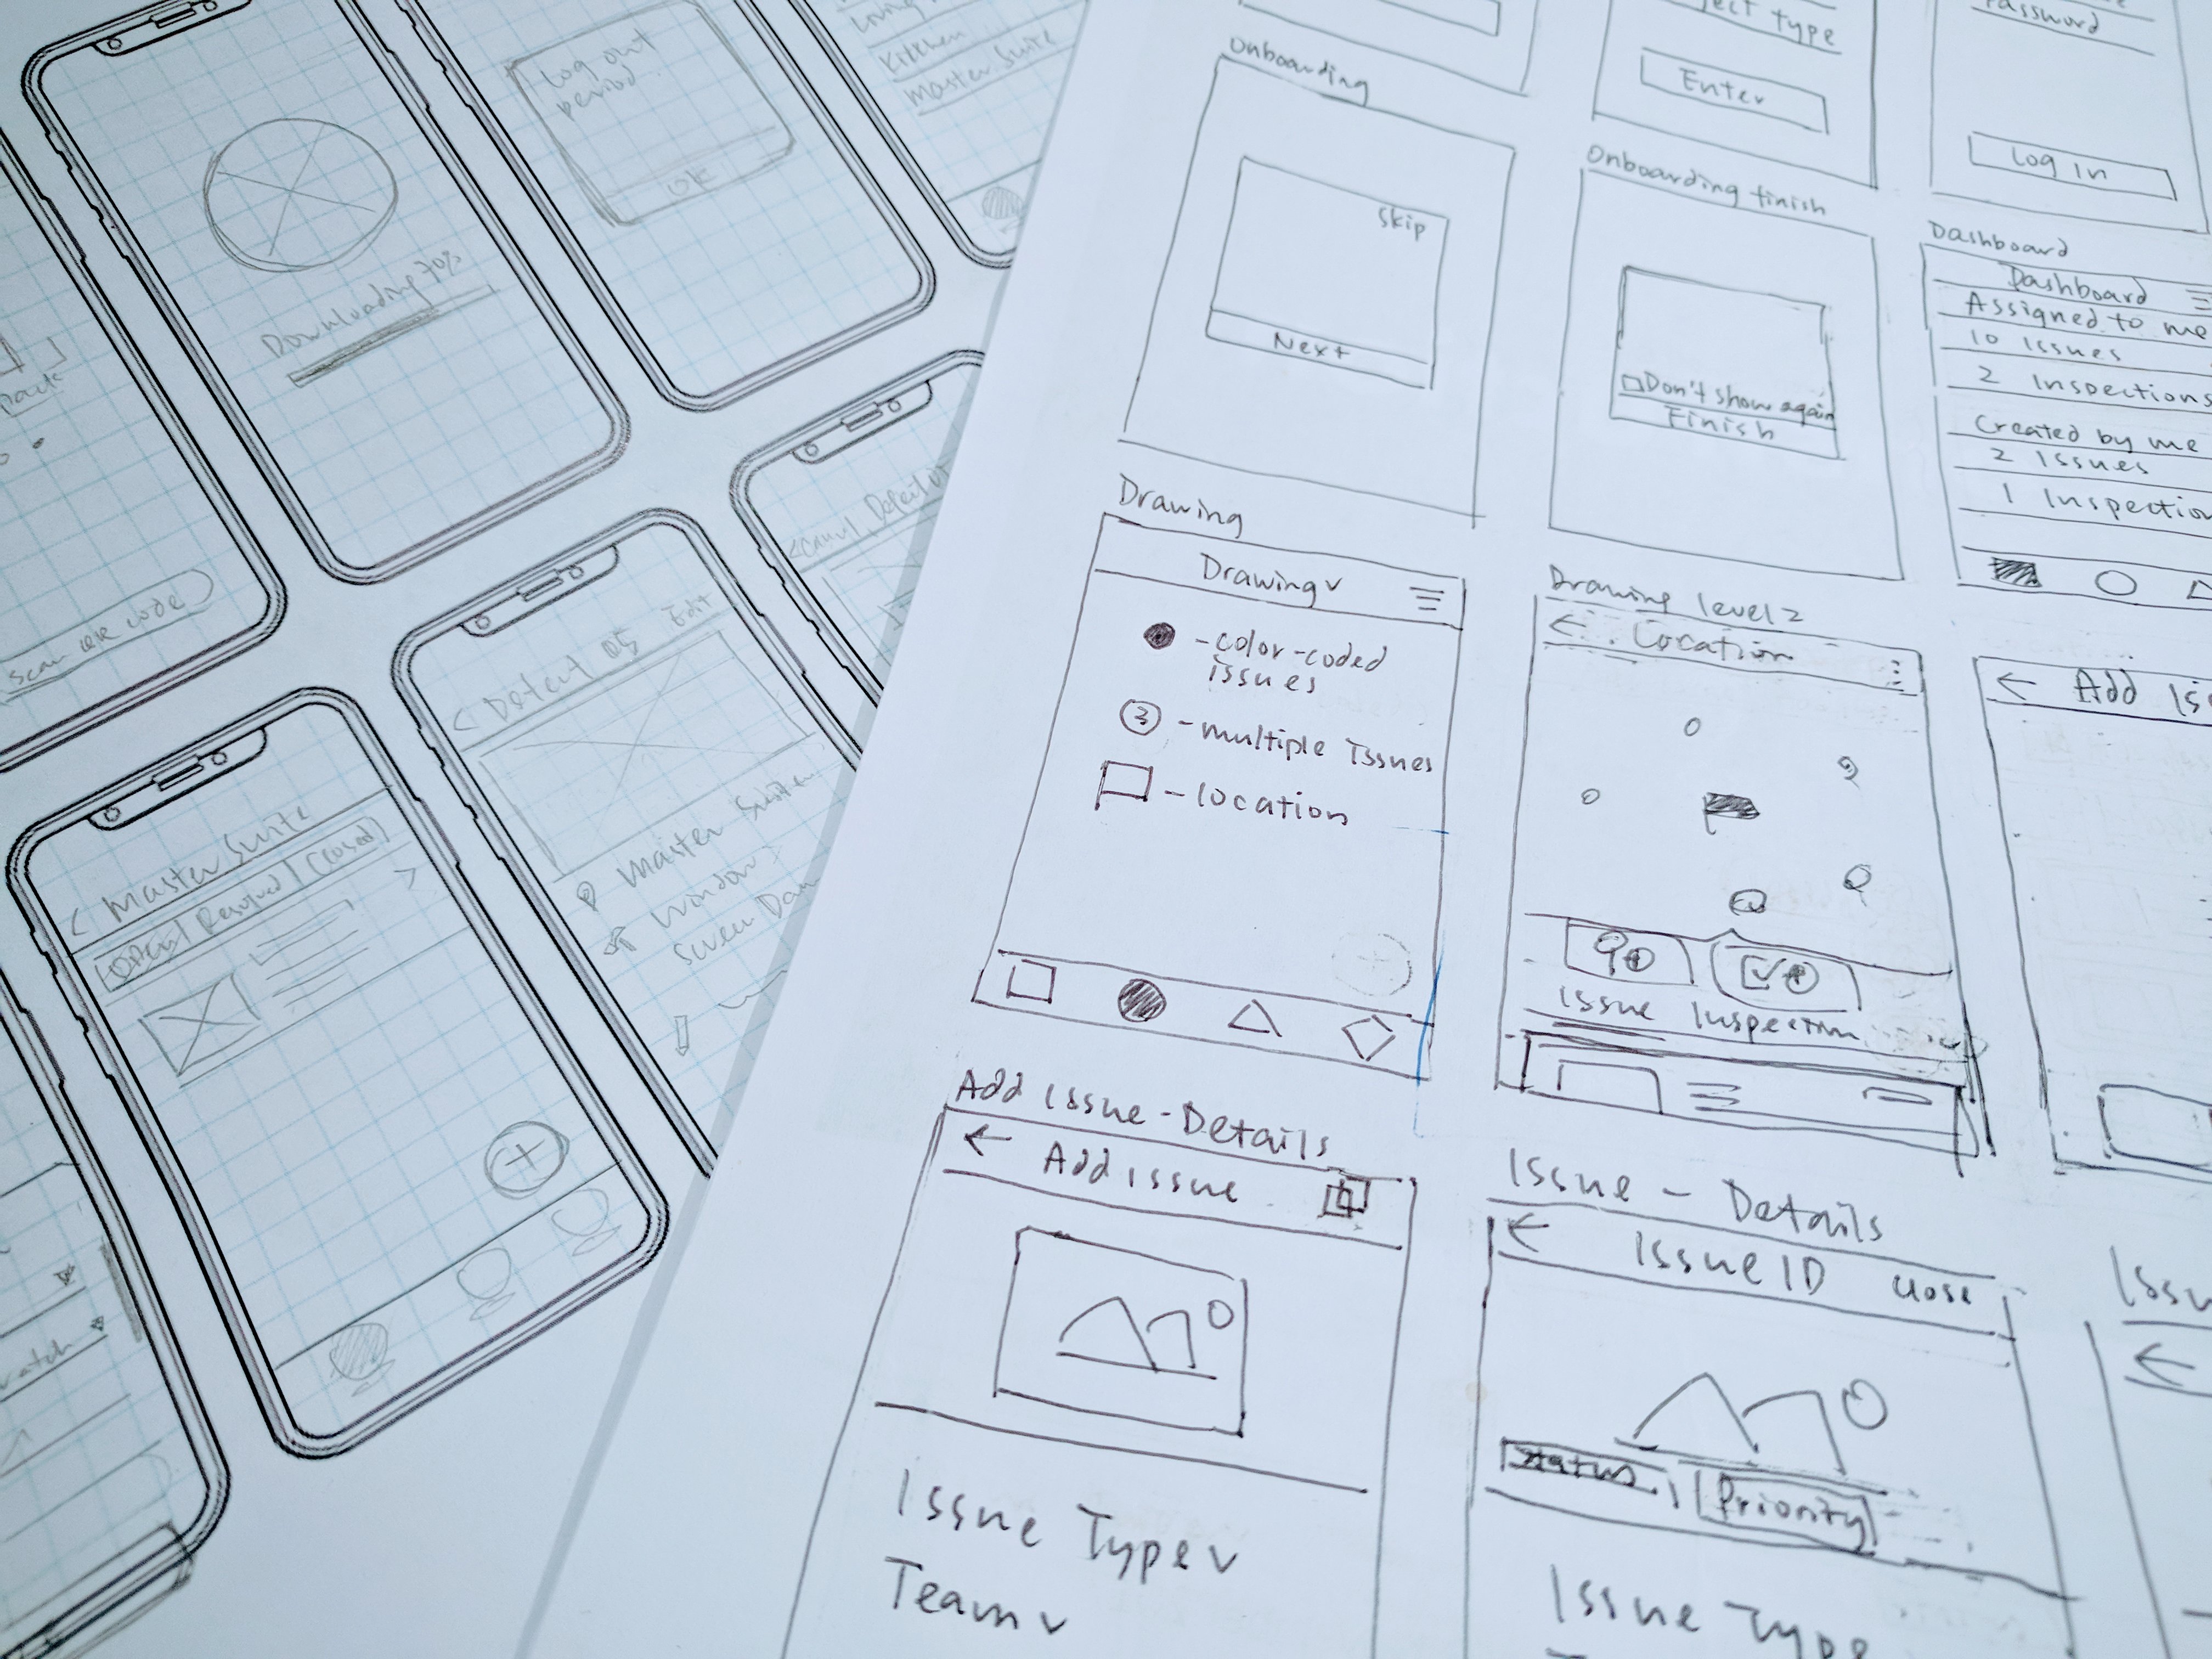 Log out
period
OK
Kitchen
Master Suite
Downloading 70%
Scan QR code
< Defect 05 Edit
Master Suite
Window
Screen Dam
< Master Suite
Open Resolved Closed
ject type
Enter
Password
Log In
Onboarding
Skip
Next
Onboarding finish
Don't show again
Finish
Dashboard
Dashboard
Assigned to me
10 Issues
2 Inspections
Created by me
2 Issues
1 Inspection
Drawing
Drawing v
- color-coded
issues
3 - multiple issues
- location
Drawing level 2
← Location
Issue Inspection
← Add Iss
Add Issue - Details
← Add issue
Issue Type v
Team v
Issue - Details
← Issue ID Close
Status Priority
Issue Type
Issu
←